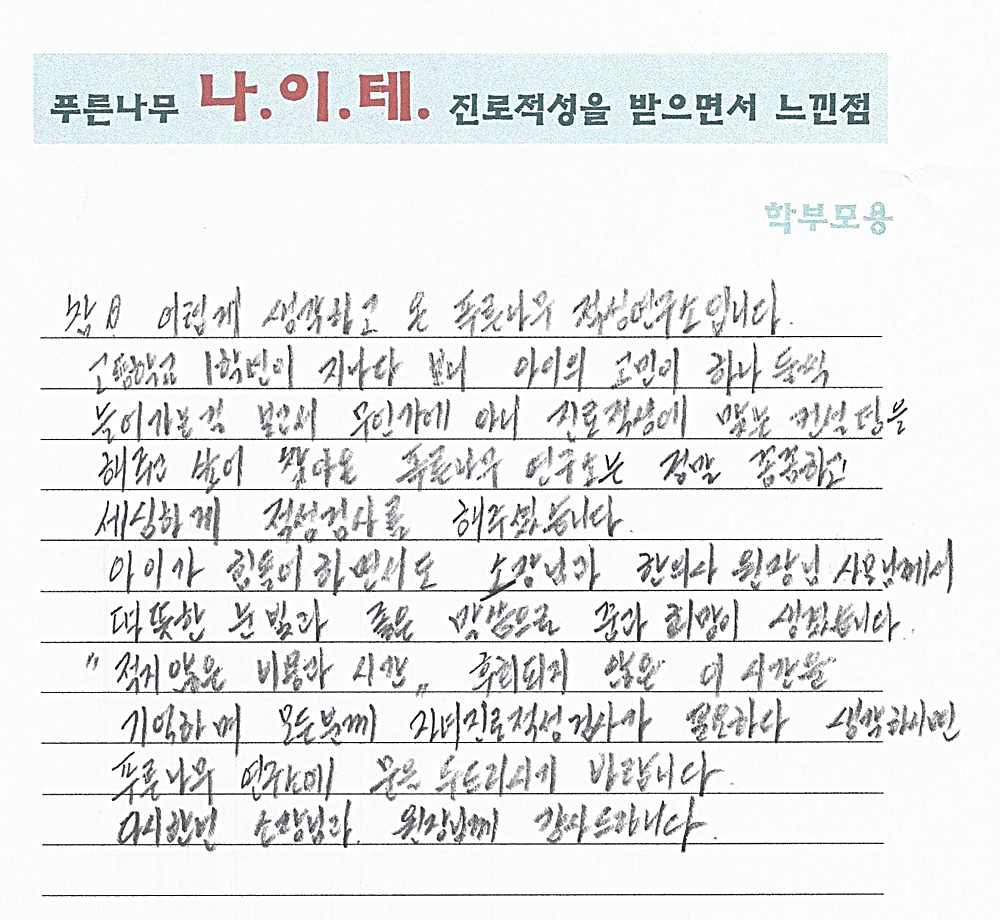 푸른나무 나.이.테. 진로적성을 받으면서 느낀점
학부모용
참 어렵게 생각하고 온 푸른나무 적성연구소입니다.
고등학교 1학년이 지나다 보니 아이의 고민이 하나 둘씩
늘어가는걸 보면서 무언가에 아니 진로적성에 맞는 컨설팅을
해주고 싶어 찾아온 푸른나무 연구소는 정말 꼼꼼하고
세심하게 적성검사를 해주셨습니다.
아이가 힘들어 하면서도 소장님과 한의사 원장님 사모님께서
따뜻한 눈빛과 좋은 말씀으로 꿈과 희망이 생겼습니다.
"적지않은 비용과 시간" 후회되지 않은 이 시간을
기억하며 모든분께 자녀진로적성검사가 필요하다 생각하시면
푸른나무 연구소에 문을 두드리시기 바랍니다.
다시한번 소장님과. 원장님께 감사드립니다.